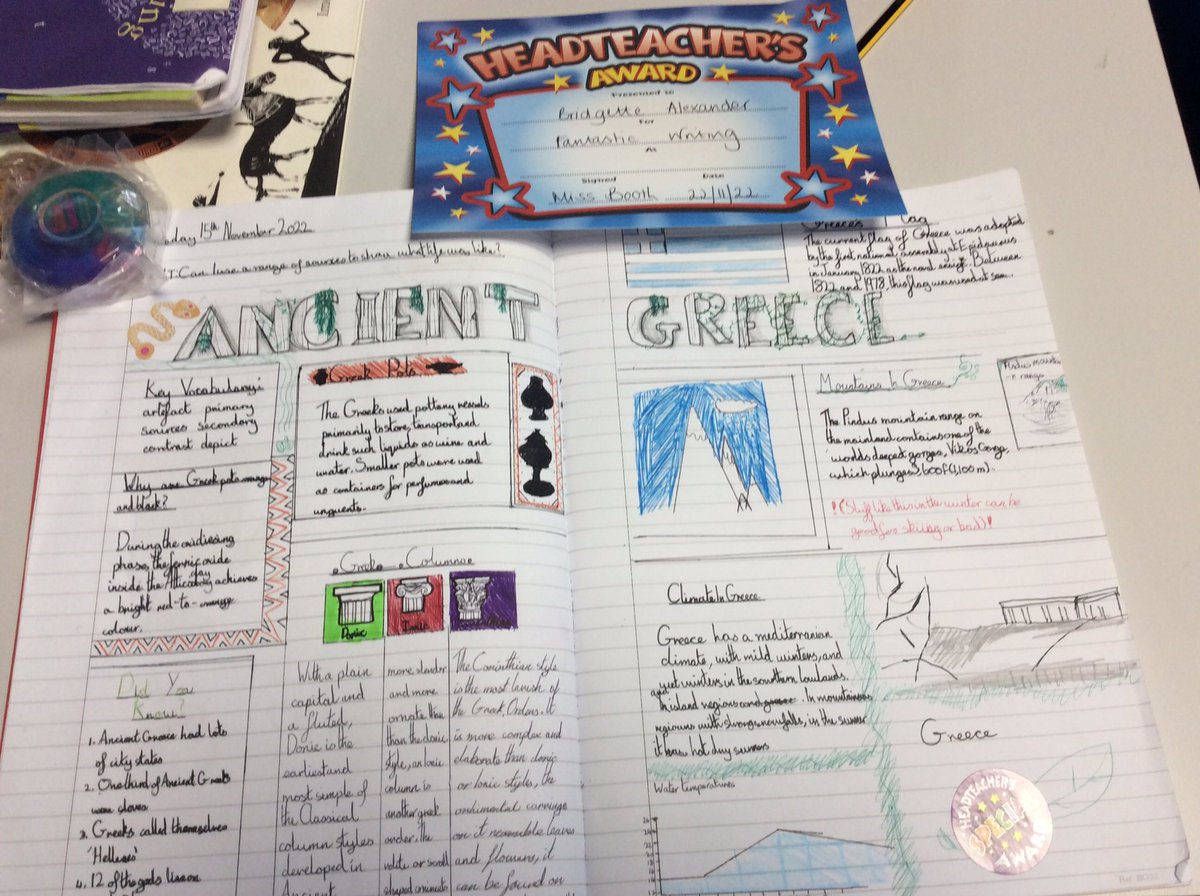 HEADTEACHER'S
AWARD
Presented to
Bridgette Alexander
For
Fantastic Writing
At
Signed Date
Miss Booth 22/11/22
15th November 2022
Can I use a range of sources to show what life was like?
ANCIENT
Key Vocabulary:
artefact primary
sources secondary
contrast depict
Why are Greek pots orange
and black?
During the oxidising
phase, the ferric oxide
inside the Attic clay achieves
a bright red-to-orange
colour.
Did You
Know?
1. Ancient Greece had lots
of city states
2. One third of Ancient Greeks
were slaves
3. Greeks called themselves
'Hellenes'
4. 12 of the gods live on
Greek Pots
The Greeks used pottery vessels
primarily to store, transport and
drink such liquids as wine and
water. Smaller pots were used
as containers for perfumes and
unguents.
Greek Columns
Doric
Ionic
With a plain
capital and
a fluted,
Doric is the
earliest and
most simple of
the Classical
column styles
developed in
Ancient
more slender
and more
ornate than
than the doric
style, an ionic
column is
another greek
order. the
volute or scroll
shaped ornaments
The Corinthian style
is the most lavish of
the Greek Orders. It
is more complex and
elaborate than doric
or Ionic styles, the
ornimental carvings
on it resemble leaves
and flowers, it
can be found on
Greece's Flag
The current flag of Greece was adopted
by the first national assembly at Epidaurus
in January 1822 as the naval ensign. Between
1822 and 1978, this flag was used at sea.
GREECE
Mountains In Greece
The Pindus mountain range on
the mainland contains one of the
worlds deepest gorges, Vikos Gorge,
which plunges 3,600f (1,100m).
!(Stuff like this in the winter can be
good for skiing or bad)!
Pindus mountai
n range
Climate In Greece
Greece has a mediterranian
climate, with mild winters, and
wet winters in the southern lowlands.
and island regions and greece. In mountainous
regions with strong snowfalls, in the summer
it has hot dry summers
Water temperatures
Greece
HEADTEACHER'S
SPECIAL
AWARD